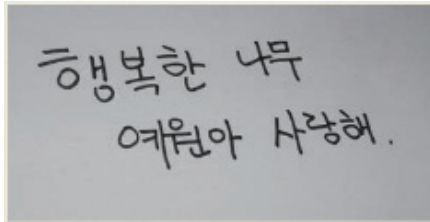 행복한 나무
예원아 사랑해.